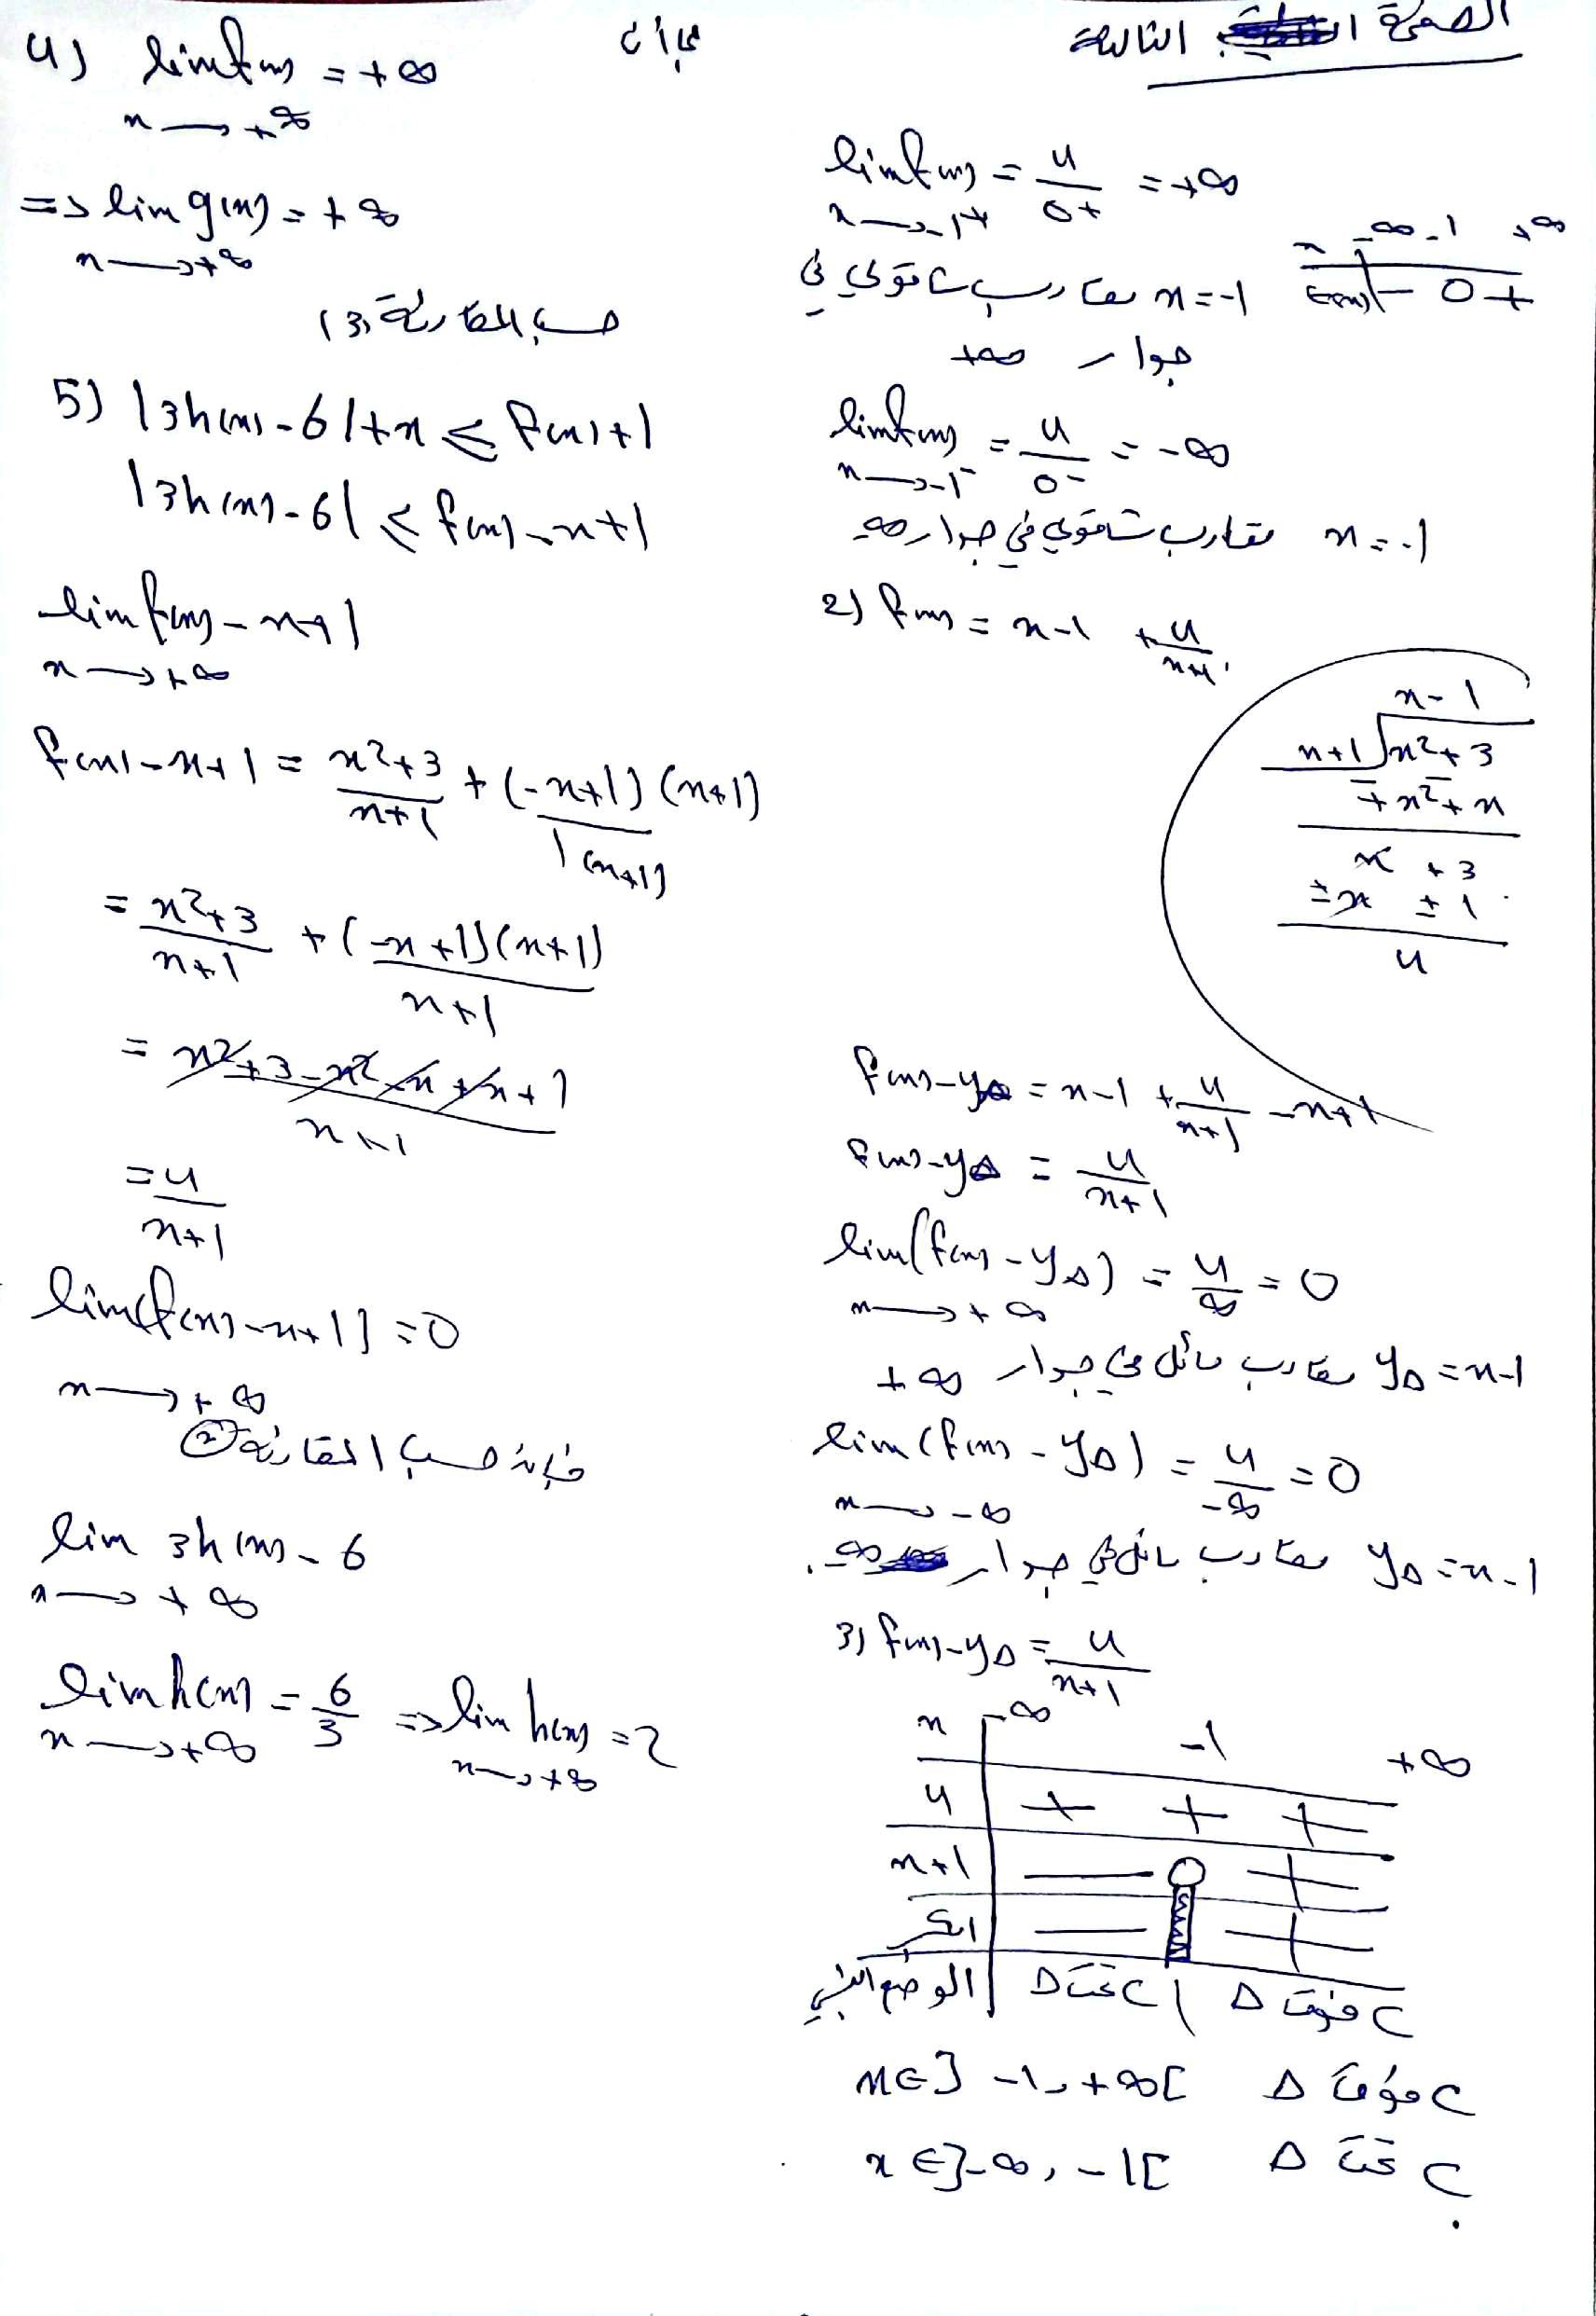 الصفحة الثالثة
lim f(x) = 4/0+ = +∞
x → -1+
x -∞ -1 +∞
- 0 +
x = -1 مقارب شاقولي في
جوار +∞
lim f(x) = 4/0- = -∞
x → -1-
x = -1 مقارب شاقولي في جوار -∞
2) f(x) = x-1 + 4/x+1
x-1
x+1 x²+3
x²+x
x +3
±x ±1
4
f(x)-yΔ = x-1 + 4/x+1 -x+1
f(x)-yΔ = 4/x+1
lim(f(x)-yΔ) = 4/∞ = 0
x → +∞
yΔ = x-1 مقارب مائل في جوار +∞
lim(f(x)-yΔ) = 4/-∞ = 0
x → -∞
yΔ = x-1 مقارب مائل في جوار -∞.
3) f(x)-yΔ = 4/x+1
x -∞ -1 +∞
4 + + +
x+1 — 0 +
الكسر — +
الوضع النسبي C تحت Δ | C فوق Δ
x∈]-1, +∞[ C فوق Δ
x∈]-∞, -1[ C تحت Δ
4) lim f(x) = +∞
x → +∞
=> lim g(x) = +∞
x → +∞
حسب المقارنة (3)
5) |3h(x)-6|+x ≤ f(x)+1
|3h(x)-6| ≤ f(x)-x+1
lim f(x)-x+1
x → +∞
f(x)-x+1 = x²+3/x+1 + (-x+1)(x+1)/1(x+1)
= x²+3/x+1 + (-x+1)(x+1)/x+1
= x²+3-x²-x+x+1/x+1
= 4/x+1
lim(f(x)-x+1) = 0
x → +∞
فإنه حسب المقارنة (2)
lim 3h(x)-6
x → +∞
lim h(x) = 6/3 => lim h(x) = 2
x → +∞ x → +∞